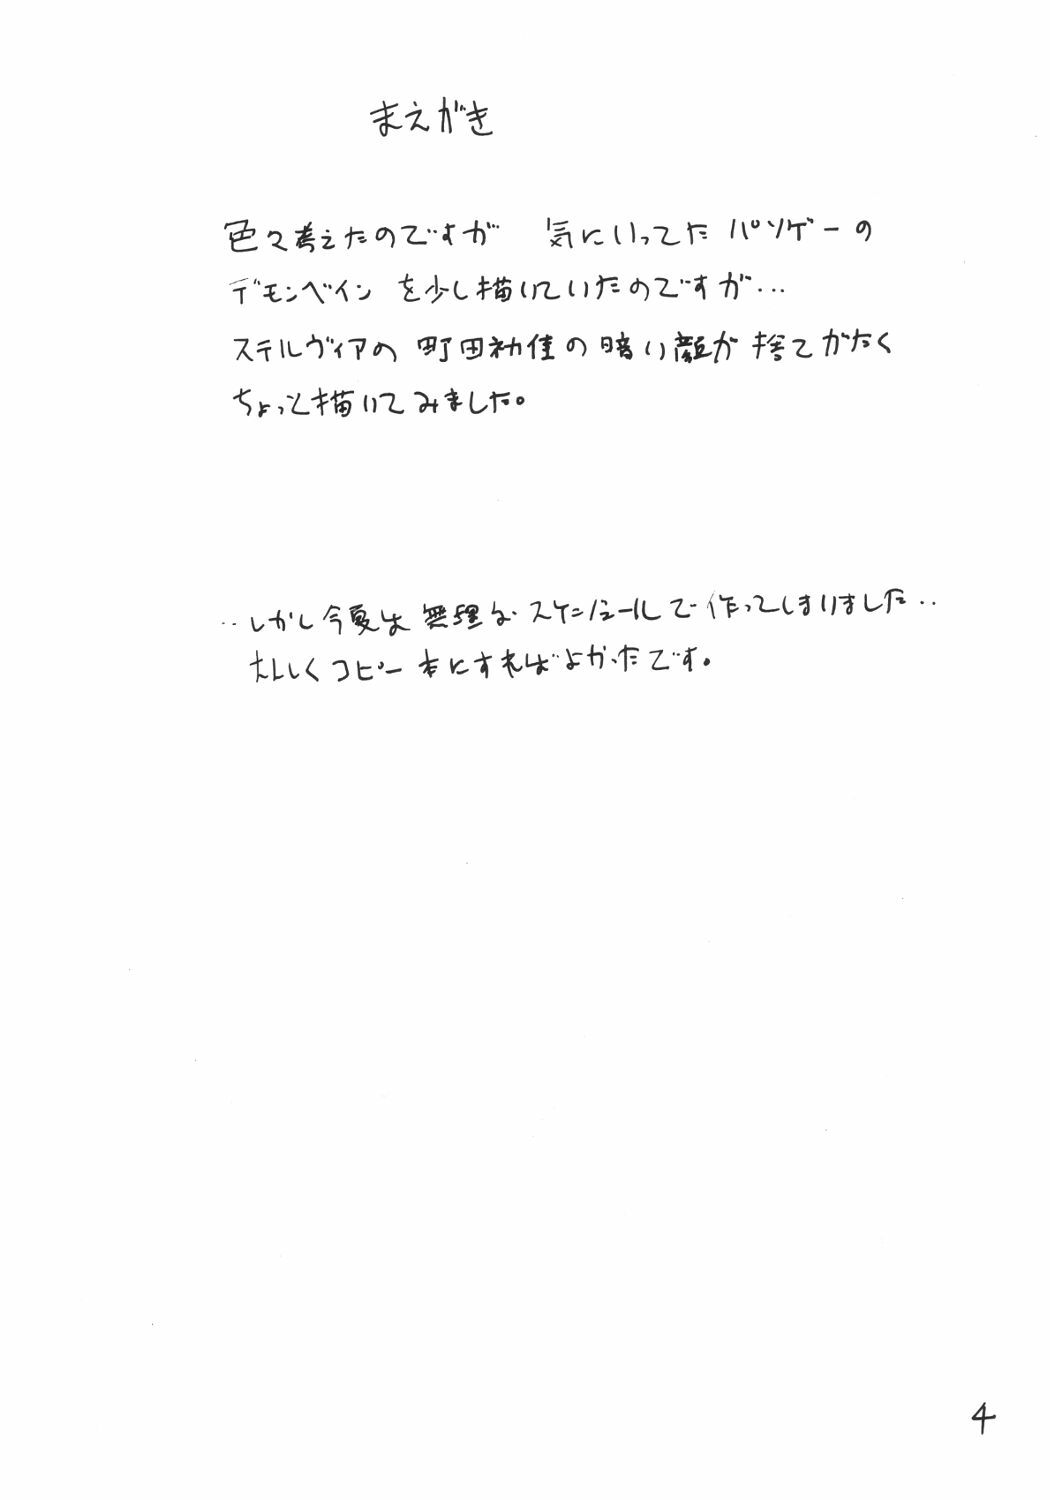 まえがき
色々考えたのですが 気にいってた パソゲーの
デモンベイン を少し描いていたのですが...
ステルヴィアの 町田初佳の暗い顔が 捨てがたく
ちょっと描いてみました。
..しかし今夏は 無理な スケジュールで 作ってしまいました..
大人しくコピー本にすればよかったです。
4